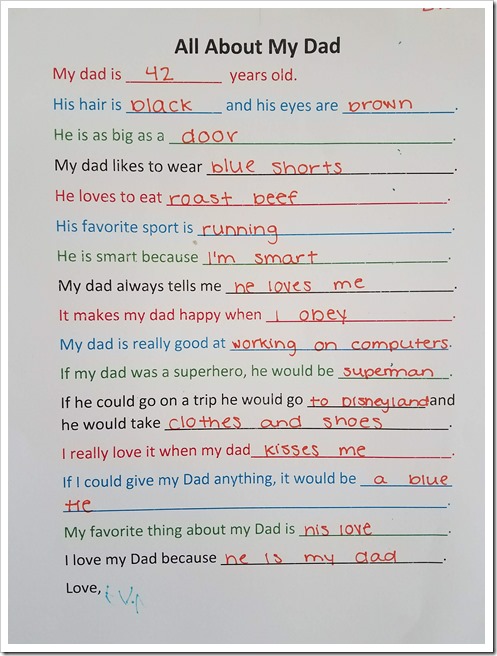 All About My Dad
My dad is 42 years old.
His hair is black and his eyes are brown.
He is as big as a door.
My dad likes to wear blue shorts.
He loves to eat roast beef.
His favorite sport is running.
He is smart because I'm smart.
My dad always tells me he loves me.
It makes my dad happy when I obey.
My dad is really good at working on computers.
If my dad was a superhero, he would be superman.
If he could go on a trip he would go to Disneyland and
he would take clothes and shoes.
I really love it when my dad kisses me.
If I could give my Dad anything, it would be a blue
tie.
My favorite thing about my Dad is his love.
I love my Dad because he is my dad.
Love,